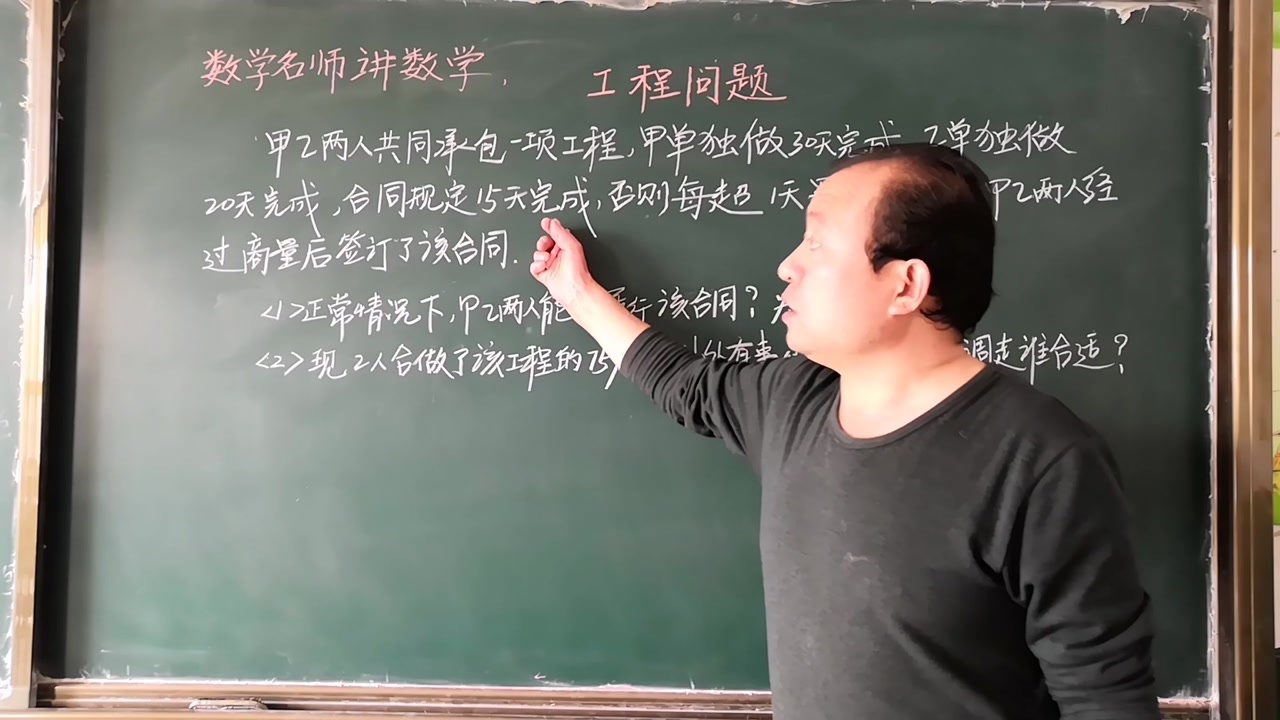 数学名师讲数学,
工程问题
甲乙两人共同承包一项工程,甲单独做30天完成 乙单独做
20天完成,合同规定15天完成,否则每超1天 甲乙两人经
过商量后签订了该合同.
<1>正常情况下,甲乙两人能 行该合同?
<2>现2人合做了该工程的75 外有事 调走谁合适?